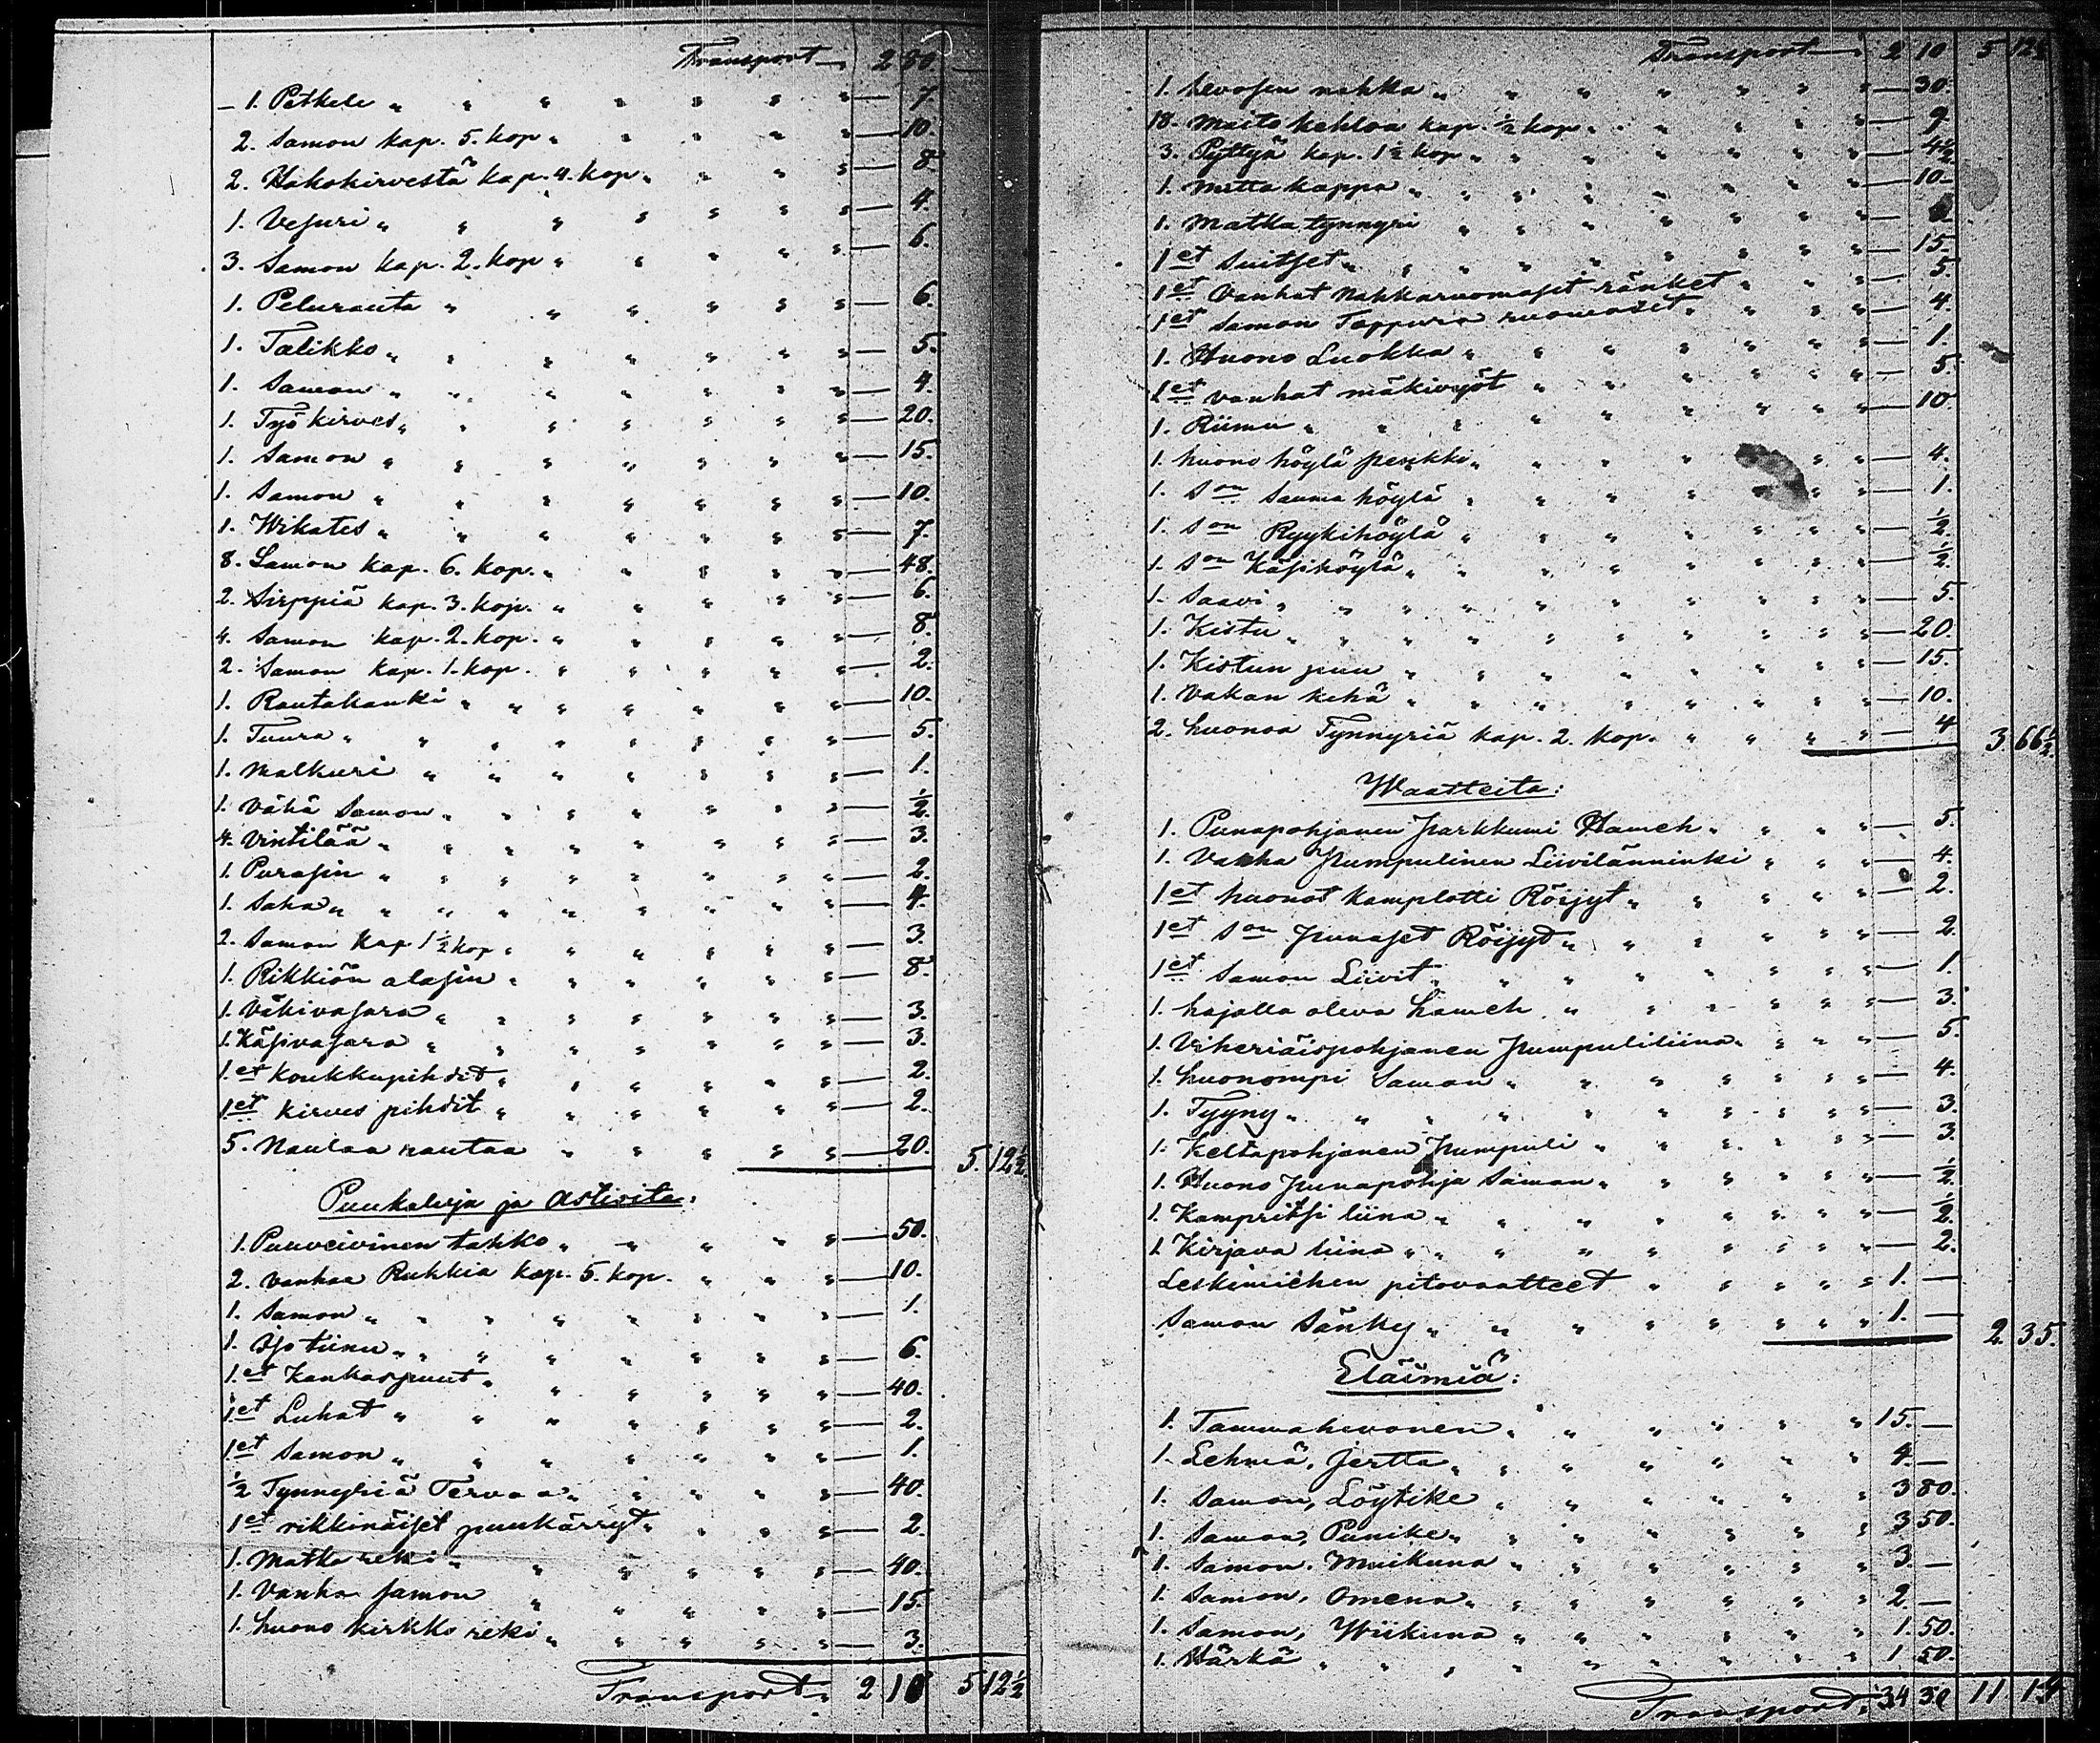 Transport 2 80.
1. Petkele " " " " " " — 7.
2. Samon kap. 5. kop " " " " — 10.
2. Hakokirvestä kap. 4. kop. " " " — 8.
1. Vesuri " " " " " " — 4.
3. Samon kap. 2. kop " " " " — 6.
1. Pelurauta " " " " " — 6.
1. Talikko " " " " " " — 5.
1. Samon " " " " " " — 4.
1. Työkirves " " " " " " — 20.
1. Samon " " " " " " — 15.
1. Samon " " " " " " — 10.
1. Wikates " " " " " " — 7.
8. Samon kap. 6. kop. " " " " — 48.
2. Sirppiä kap. 3. kop. " " " " — 6.
4. Samon kap. 2. kop. " " " " — 8.
2. Samon kap. 1. kop. " " " " — 2.
1. Rautakanki " " " " " " — 10.
1. Tuura " " " " " " — 5.
1. Malkuri " " " " " " — 1.
1. Vähä Samon " " " " " — ½
4. Vintilää " " " " " " — 3.
1. Purasin " " " " " " — 2.
1. Saha " " " " " " — 4.
2. Samon kap 1½ kop " " " " — 3.
1. Rikkiön alasin " " " " " — 8.
1. Väkivasara " " " " " " — 3.
1. Käsivasara " " " " " " — 3.
1.et Koukkupihdit " " " " " — 2.
1et Kirves pihdit " " " " " — 2.
5. Naulaa rautaa " " " " " — 20. 5. 12½
Puukaluja ja Astioita:
1. Puuveivinen tahko " " " " — 50.
2. Vanhaa Rukkia kap. 5. kop. " " " — 10.
1. Samon " " " " " " — 1.
1. Iso tiinu " " " " " " — 6.
1.et Kankaspuut " " " " " — 40.
1et Luhat " " " " " " — 2.
1et Samon " " " " " " — 1.
½ Tynnyriä Tervaa " " " " — 40.
1et rikkinäiset puukärryt " " " — 2.
1. Matka reki " " " " " — 40.
1. Vanha Samon " " " " " — 15.
1. huono kirkko reki " " " " — 3.
Transport 2 10 5 12½
Transport 2 10 5 12½
1. hevosen nahka " " " " " " — 30.
18. Maito kehloa kap. ½ kop. " " " " — 9.
3. Pyttyä kap. 1½ kop " " " " " — 4½
1. Mitta kappa " " " " " " — 10.
1. Matka tynnyri " " " " " "
1et Suitset " " " " " " — 15.
1et Vanhat Nahkaruomaset ränket " " " — 5.
1et Samon Tappura ruomaset " " " — 4.
1. Huono Luokka " " " " " " — 1.
1et vanhat mäkivyöt " " " " " — 5.
1. Riimu " " " " " " — 10.
1. huono höylä penkki " " " " " — 4.
1. Son Sauma höylä " " " " " — 1.
1. Son Ryykihöylä " " " " " — ½
1. Son Käsihöylä " " " " " — ½
1. Saavi " " " " " " — 5.
1. Kistu " " " " " " — 20.
1. Kistun puu " " " " " " — 15.
1. Vakan kehä " " " " " " — 10.
2. huonoa Tynnyriä kap. 2. kop. " " " " — 4 3. 66½
Waatteita:
1. Punapohjanen parkkumi Hameh " " " — 5.
1. Vanha pumpulinen Liivilänninki " " " — 4.
1et huonot Kamplotti Röijyt " " " " — 2.
1et Son punaset Röijyt " " " " — 2
1et Samon Liivit " " " " " — 1.
1. hajalla oleva hameh " " " " " — 3.
1. Viheriäispohjanen pumpuliliina " " " — 5.
1. huonompi Samon " " " " " — 4.
1. Tyyny " " " " " " — 3.
1. Keltapohjanen pumpuli " " " " — 3.
1. Huono punapohja Samon " " " " — ½
1. Kampritsi liina " " " " " — ½
1. Kirjava liina " " " " " — 2.
Leskimiehen pitovaatteet " " " " 1. —
Samon Sänky " " " " " 1. — 2. 35.
Eläimiä:
1. Tammahevonen " " " " " 15. —
1. Lehmä, Jertta " " " " " 4. —
1. Samon, Löytike " " " " " 3 80.
1. Samon, Punike " " " " " 3 50.
1. Samon, Muikuna " " " " " 3. —
1. Samon, Omena " " " " " 2. —
1. Samon, Wiikuna " " " " " 1. 50.
1. Härkä " " " " " " 1 50.
Transport 34 30 11. 14